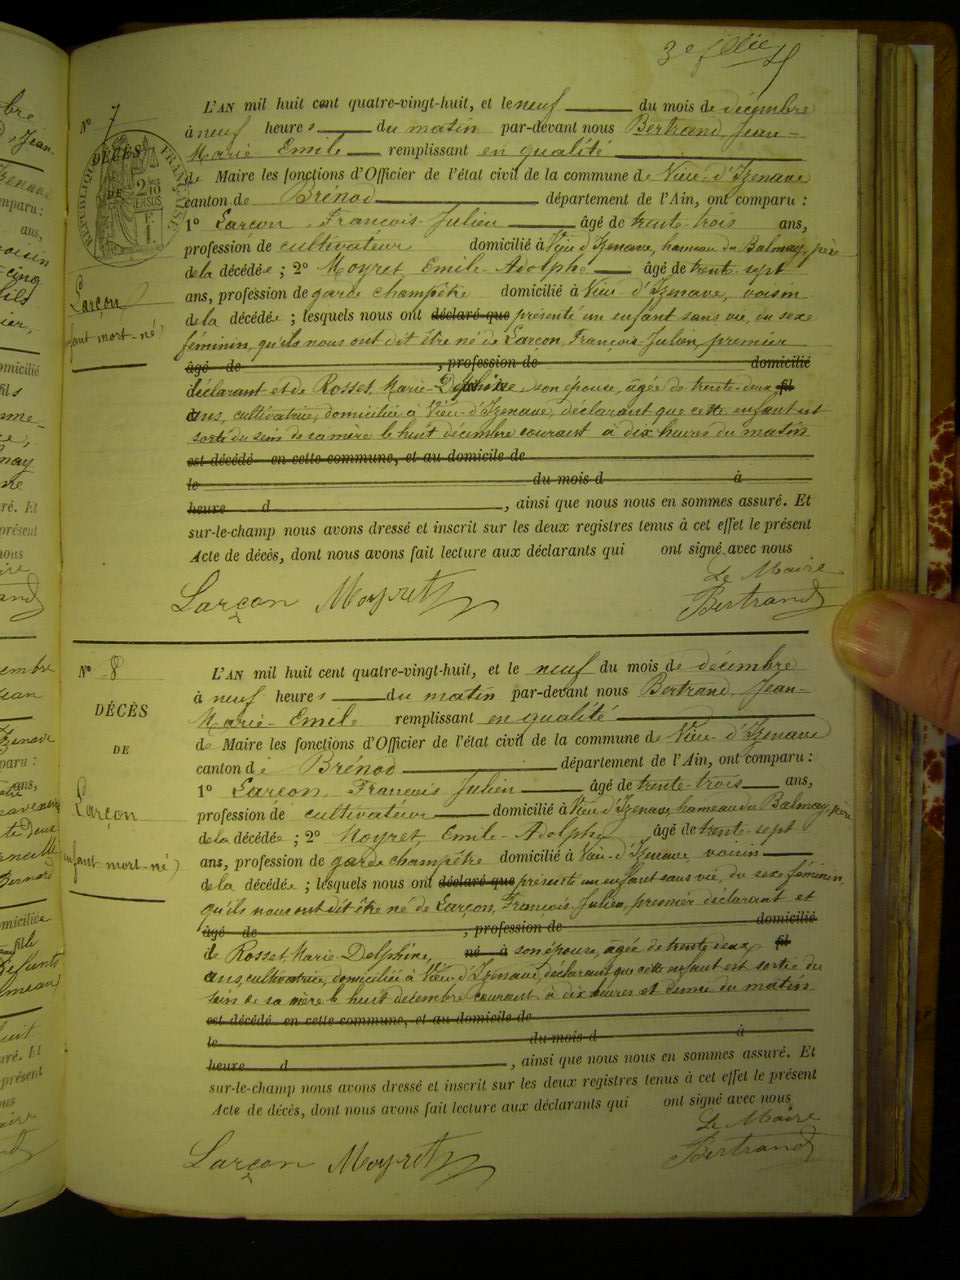 3e folio
N° 7
RÉPUBLIQUE FRANÇAISE
2/10 EN SUS
DÉCÈS
DE
Larçon
(enfant mort-né)
L'AN mil huit cent quatre-vingt-huit, et le neuf du mois de décembre
à neuf heures du matin par-devant nous Bertrand, Jean-
Marie Emile remplissant en qualité
de Maire les fonctions d'Officier de l'état civil de la commune de Vieu-d'Izenave
canton de Brénod département de l'Ain, ont comparu :
1° Larçon, François-Julien âgé de trente-trois ans,
profession de cultivateur domicilié à Vieu d'Izenave, hameau du Balmay, père
de la décédée ; 2° Moyret, Emile-Adolphe âgé de trente-sept
ans, profession de garde champêtre domicilié à Vieu-d'Izenave, voisin
de la décédée ; lesquels nous ont déclaré que présenté un enfant sans vie, du sexe
féminin, qu'ils nous ont dit être né de Larçon, François-Julien, premier
âgé de , profession de domicilié
déclarant et de Rosset, Marie-Delphine, son épouse, âgée de trente-deux fil
ans, cultivatrice, domiciliée à Vieu-d'Izenave, déclarant que cette enfant est
sortie du sein de sa mère le huit décembre courant à dix heures du matin
est décédé en cette commune, et au domicile de
le du mois d à
heure d , ainsi que nous nous en sommes assuré. Et
sur-le-champ nous avons dressé et inscrit sur les deux registres tenus à cet effet le présent
Acte de décès, dont nous avons fait lecture aux déclarants qui ont signé avec nous
Le Maire
Larçon Moyret Bertrand
N° 8
DÉCÈS
DE
Larçon
(enfant mort-né)
L'AN mil huit cent quatre-vingt-huit, et le neuf du mois de décembre
à neuf heures du matin par-devant nous Bertrand, Jean-
Marie-Emile remplissant en qualité
de Maire les fonctions d'Officier de l'état civil de la commune de Vieu-d'Izenave
canton de Brénod département de l'Ain, ont comparu :
1° Larçon, François Julien âgé de trente-trois ans,
profession de cultivateur domicilié à Vieu-d'Izenave, hameau du Balmay, père
de la décédée ; 2° Moyret, Emile-Adolphe âgé de trente-sept
ans, profession de garde champêtre domicilié à Vieu-d'Izenave, voisin
de la décédée ; lesquels nous ont déclaré que présenté un enfant sans vie, du sexe féminin,
qu'ils nous ont dit être né de Larçon, François-Julien, premier déclarant et
âgé de , profession de domicilié
de Rosset Marie-Delphine, né à son épouse, âgée de trente deux fil
ans, cultivatrice, domiciliée à Vieu-d'Izenave, déclarant que cette enfant est sortie du
sein de sa mère le huit décembre courant à dix heures et demie du matin
est décédé en cette commune, et au domicile de
le du mois d à
heure d , ainsi que nous nous en sommes assuré. Et
sur-le-champ nous avons dressé et inscrit sur les deux registres tenus à cet effet le présent
Acte de décès, dont nous avons fait lecture aux déclarants qui ont signé avec nous
Le Maire
Larçon Moyret Bertrand